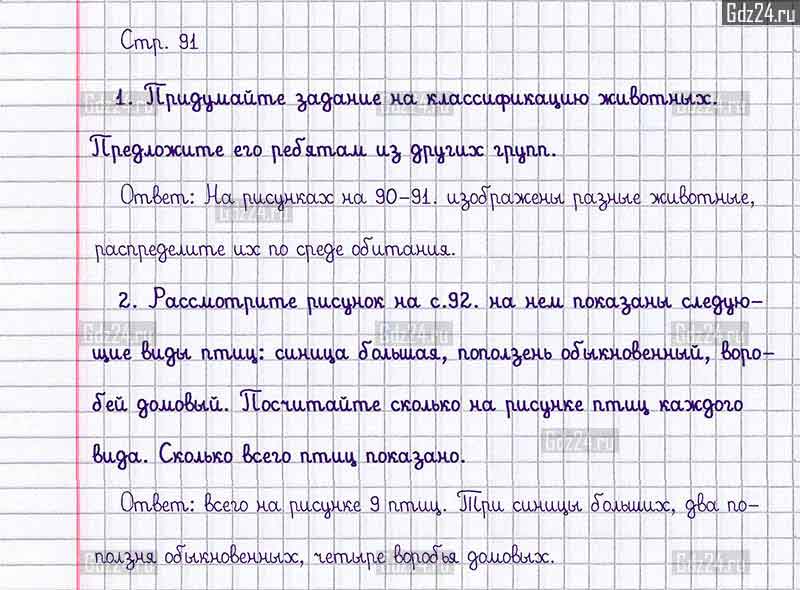 Gdz24.ru
Стр. 91
1. Придумайте задание на классификацию животных.
Предложите его ребятам из других групп.
Ответ: На рисунках на 90-91. изображены разные животные,
распределите их по среде обитания.
2. Рассмотрите рисунок на с.92. на нем показаны следую-
щие виды птиц: синица большая, поползень обыкновенный, воро-
бей домовый. Посчитайте сколько на рисунке птиц каждого
вида. Сколько всего птиц показано.
Ответ: всего на рисунке 9 птиц. Три синицы больших, два по-
ползня обыкновенных, четыре воробья домовых.